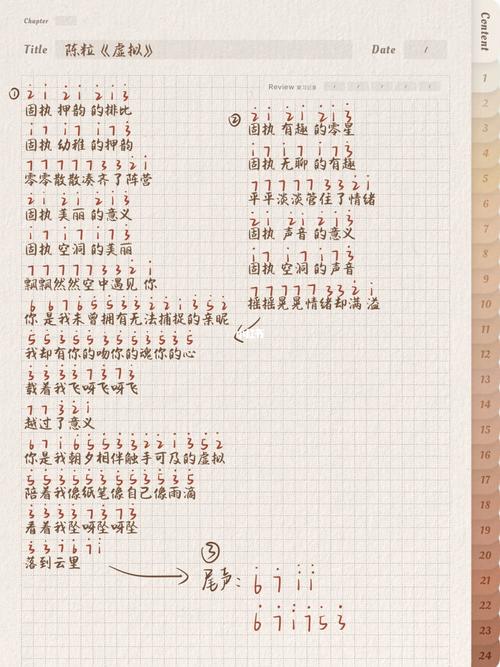 Chapter
Title 陈粒《虚拟》 Date /
Content
Review 复习记录 / / / / /
①
2 1 2 1 2 1 3
固执 押韵 的排比
1 7 1 7 1 7 3
固执 幼稚 的押韵
7 7 7 7 7 3 3 2 1
零零散散凑齐了阵营
2 1 2 1 2 1 3
固执 美丽 的意义
1 7 1 7 1 7 3
固执 空洞 的美丽
7 7 7 7 7 3 3 2 1
飘飘然然空中遇见 你
6 6 7 6 5 5 3 3 2 2 1 3 5 2
你是我未曾拥有无法捕捉的亲昵
5 5 3 5 3 5 3 5 3 5 3 5
我却有你的吻你的魂你的心
3 3 3 3 7 3 7 3
载着我飞呀飞呀飞
7 7 3 2 1
越过了意义
6 7 1 6 5 5 3 3 2 2 1 3 5 2
你是我朝夕相伴触手可及的虚拟
5 5 3 5 3 5 3 5 3 5 3 5
陪着我像纸笔像自己像雨滴
3 3 3 3 7 3 7 3
看着我坠呀坠呀坠
3 3 7 6 7 1
落到云里
②
2 1 2 1 2 1 3
固执 有趣 的零星
1 7 1 7 1 7 3
固执 无聊 的有趣
7 7 7 7 7 3 3 2 1
平平淡淡管住了情绪
2 1 2 1 2 1 3
固执 声音 的意义
1 7 1 7 1 7 3
固执 空洞 的声音
7 7 7 7 7 3 3 2 1
摇摇晃晃情绪却满 溢
③
尾声: 6 7 1 1
6 7 1 7 5 3
1
2
3
4
5
6
7
8
9
10
11
12
13
14
15
16
17
18
19
20
21
22
23
24